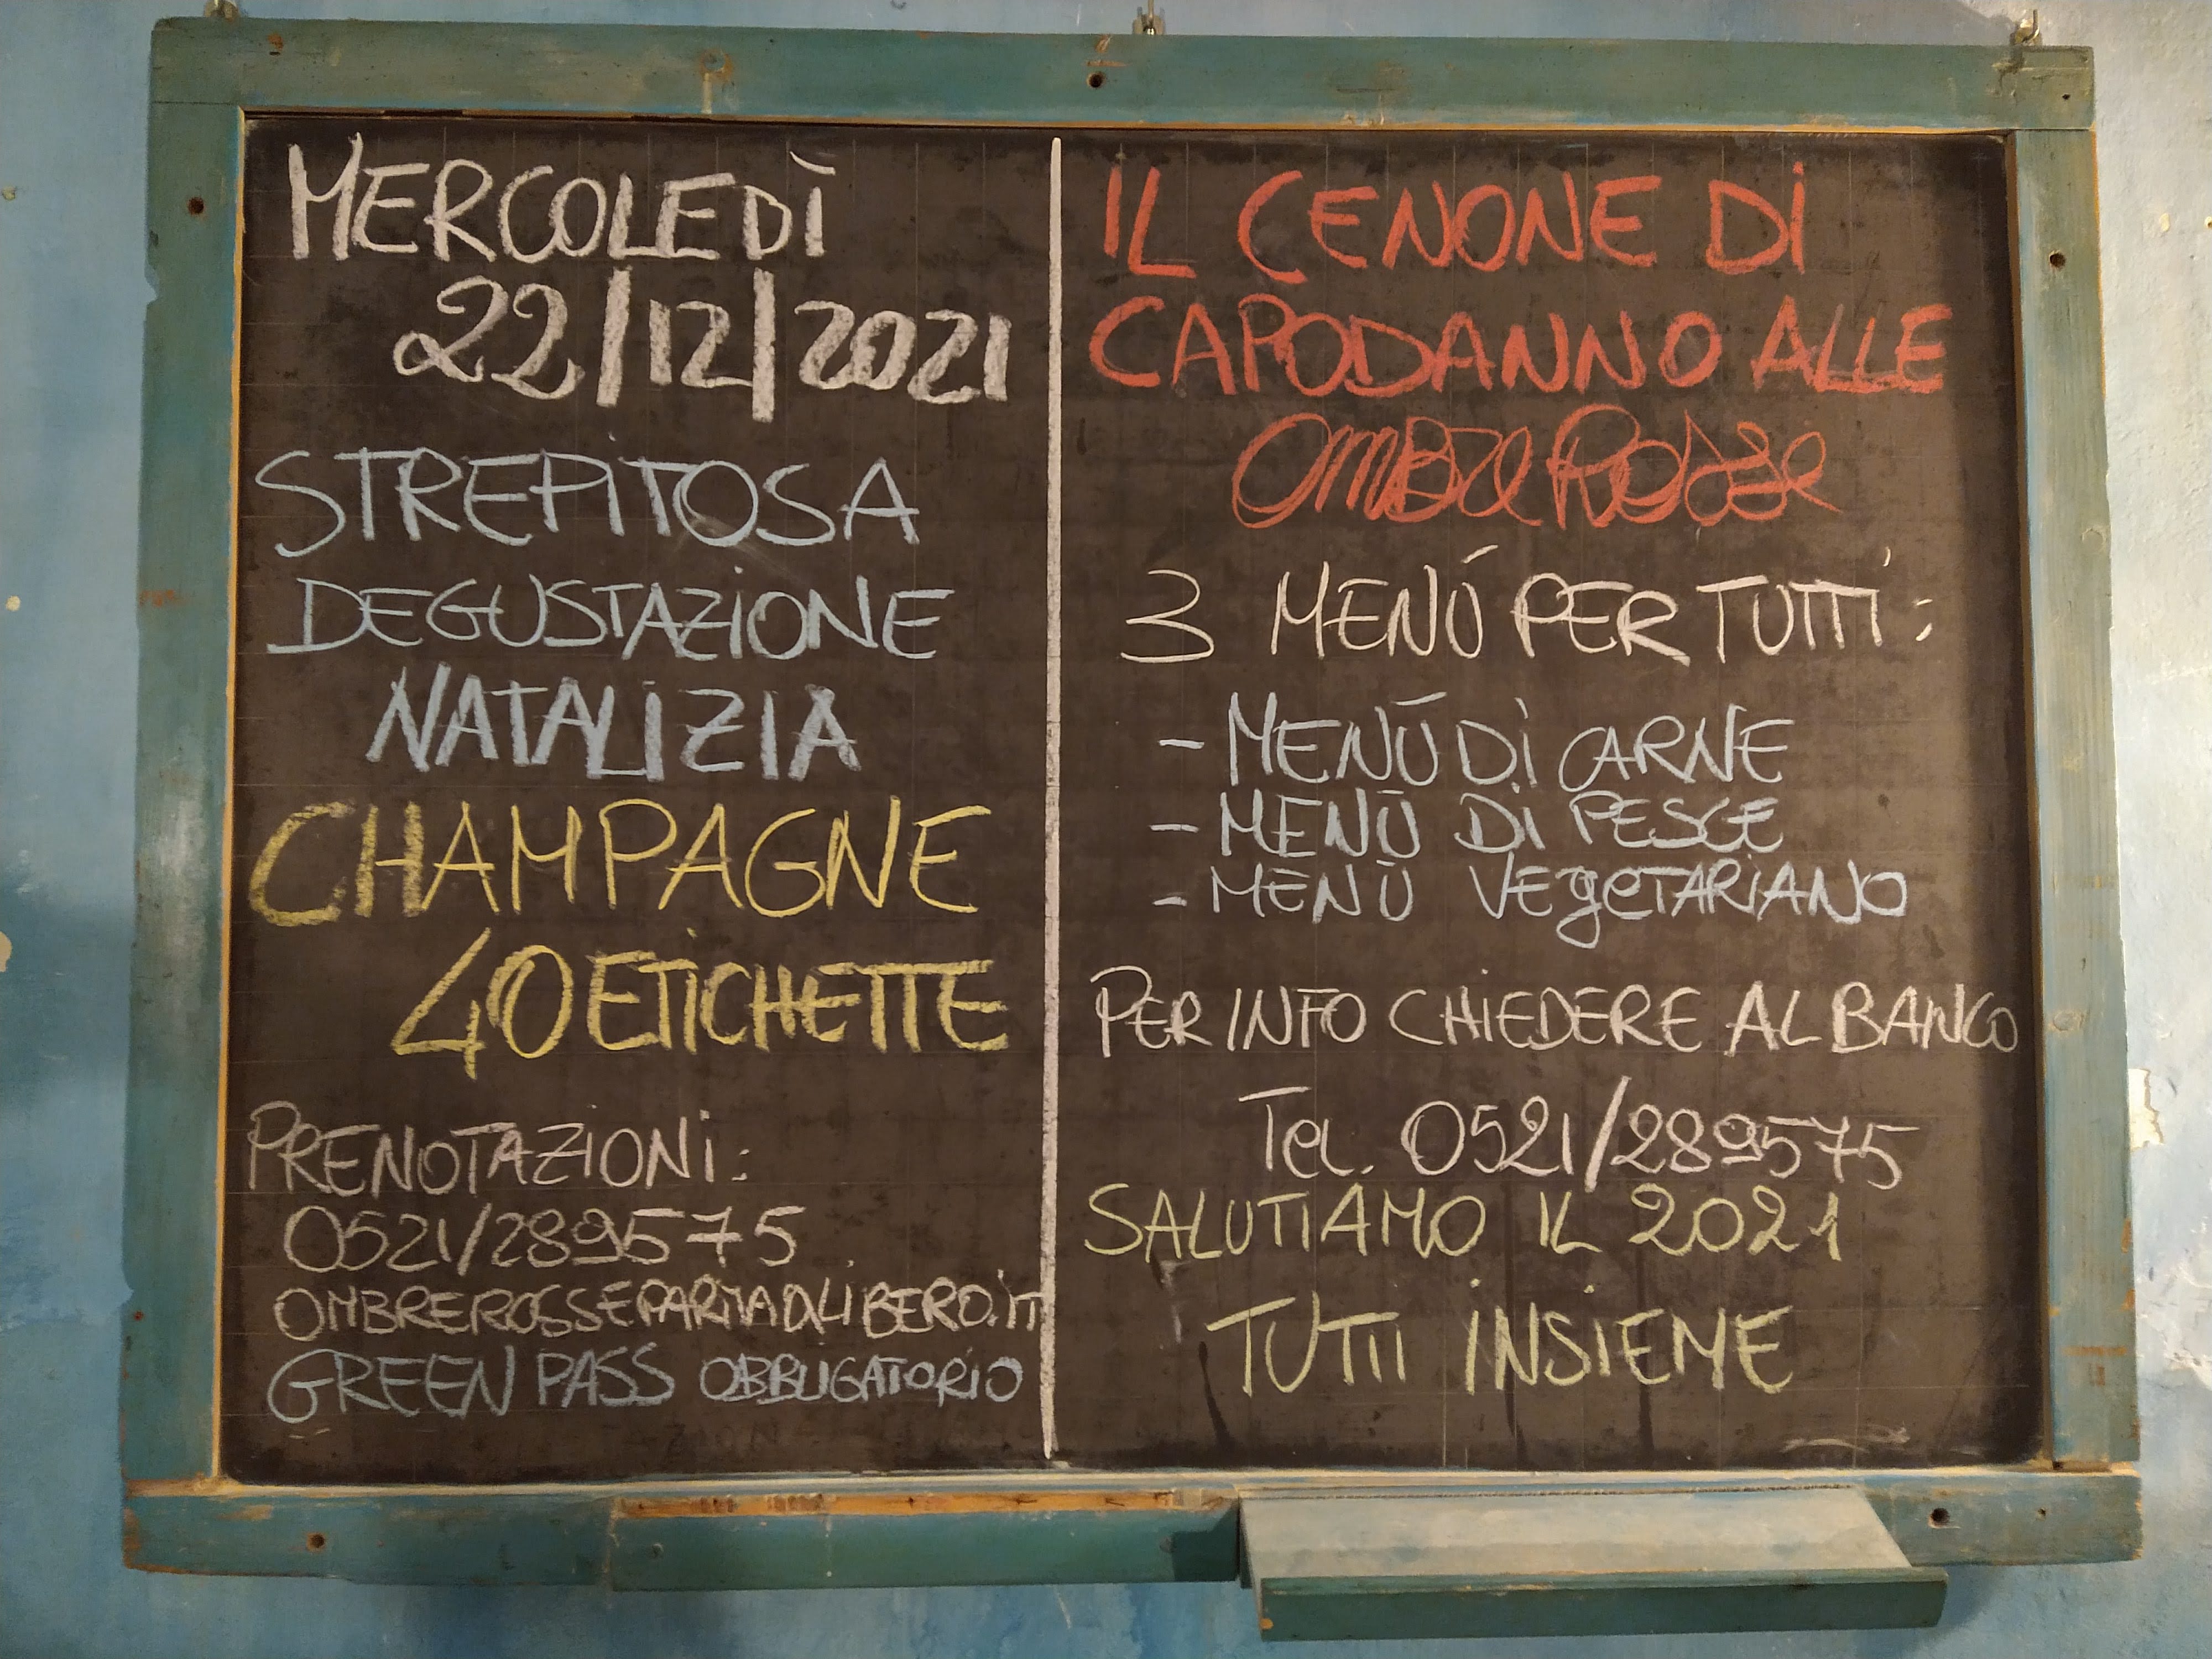 MERCOLEDÌ
22/12/2021
STREPITOSA
DEGUSTAZIONE
NATALIZIA
CHAMPAGNE
40 ETICHETTE
PRENOTAZIONI:
0521/289575
OMBREROSSEPARMA@LIBERO.IT
GREEN PASS OBBLIGATORIO
IL CENONE DI
CAPODANNO ALLE
OMBRE ROSSE
3 MENÚ PER TUTTI:
- MENÚ DI CARNE
- MENÚ DI PESCE
- MENÚ VEgeTARIANO
PER INFO CHIEDERE AL BANCO
Tel. 0521/289575
SALUTIAMO IL 2021
TUTTI INSIEME